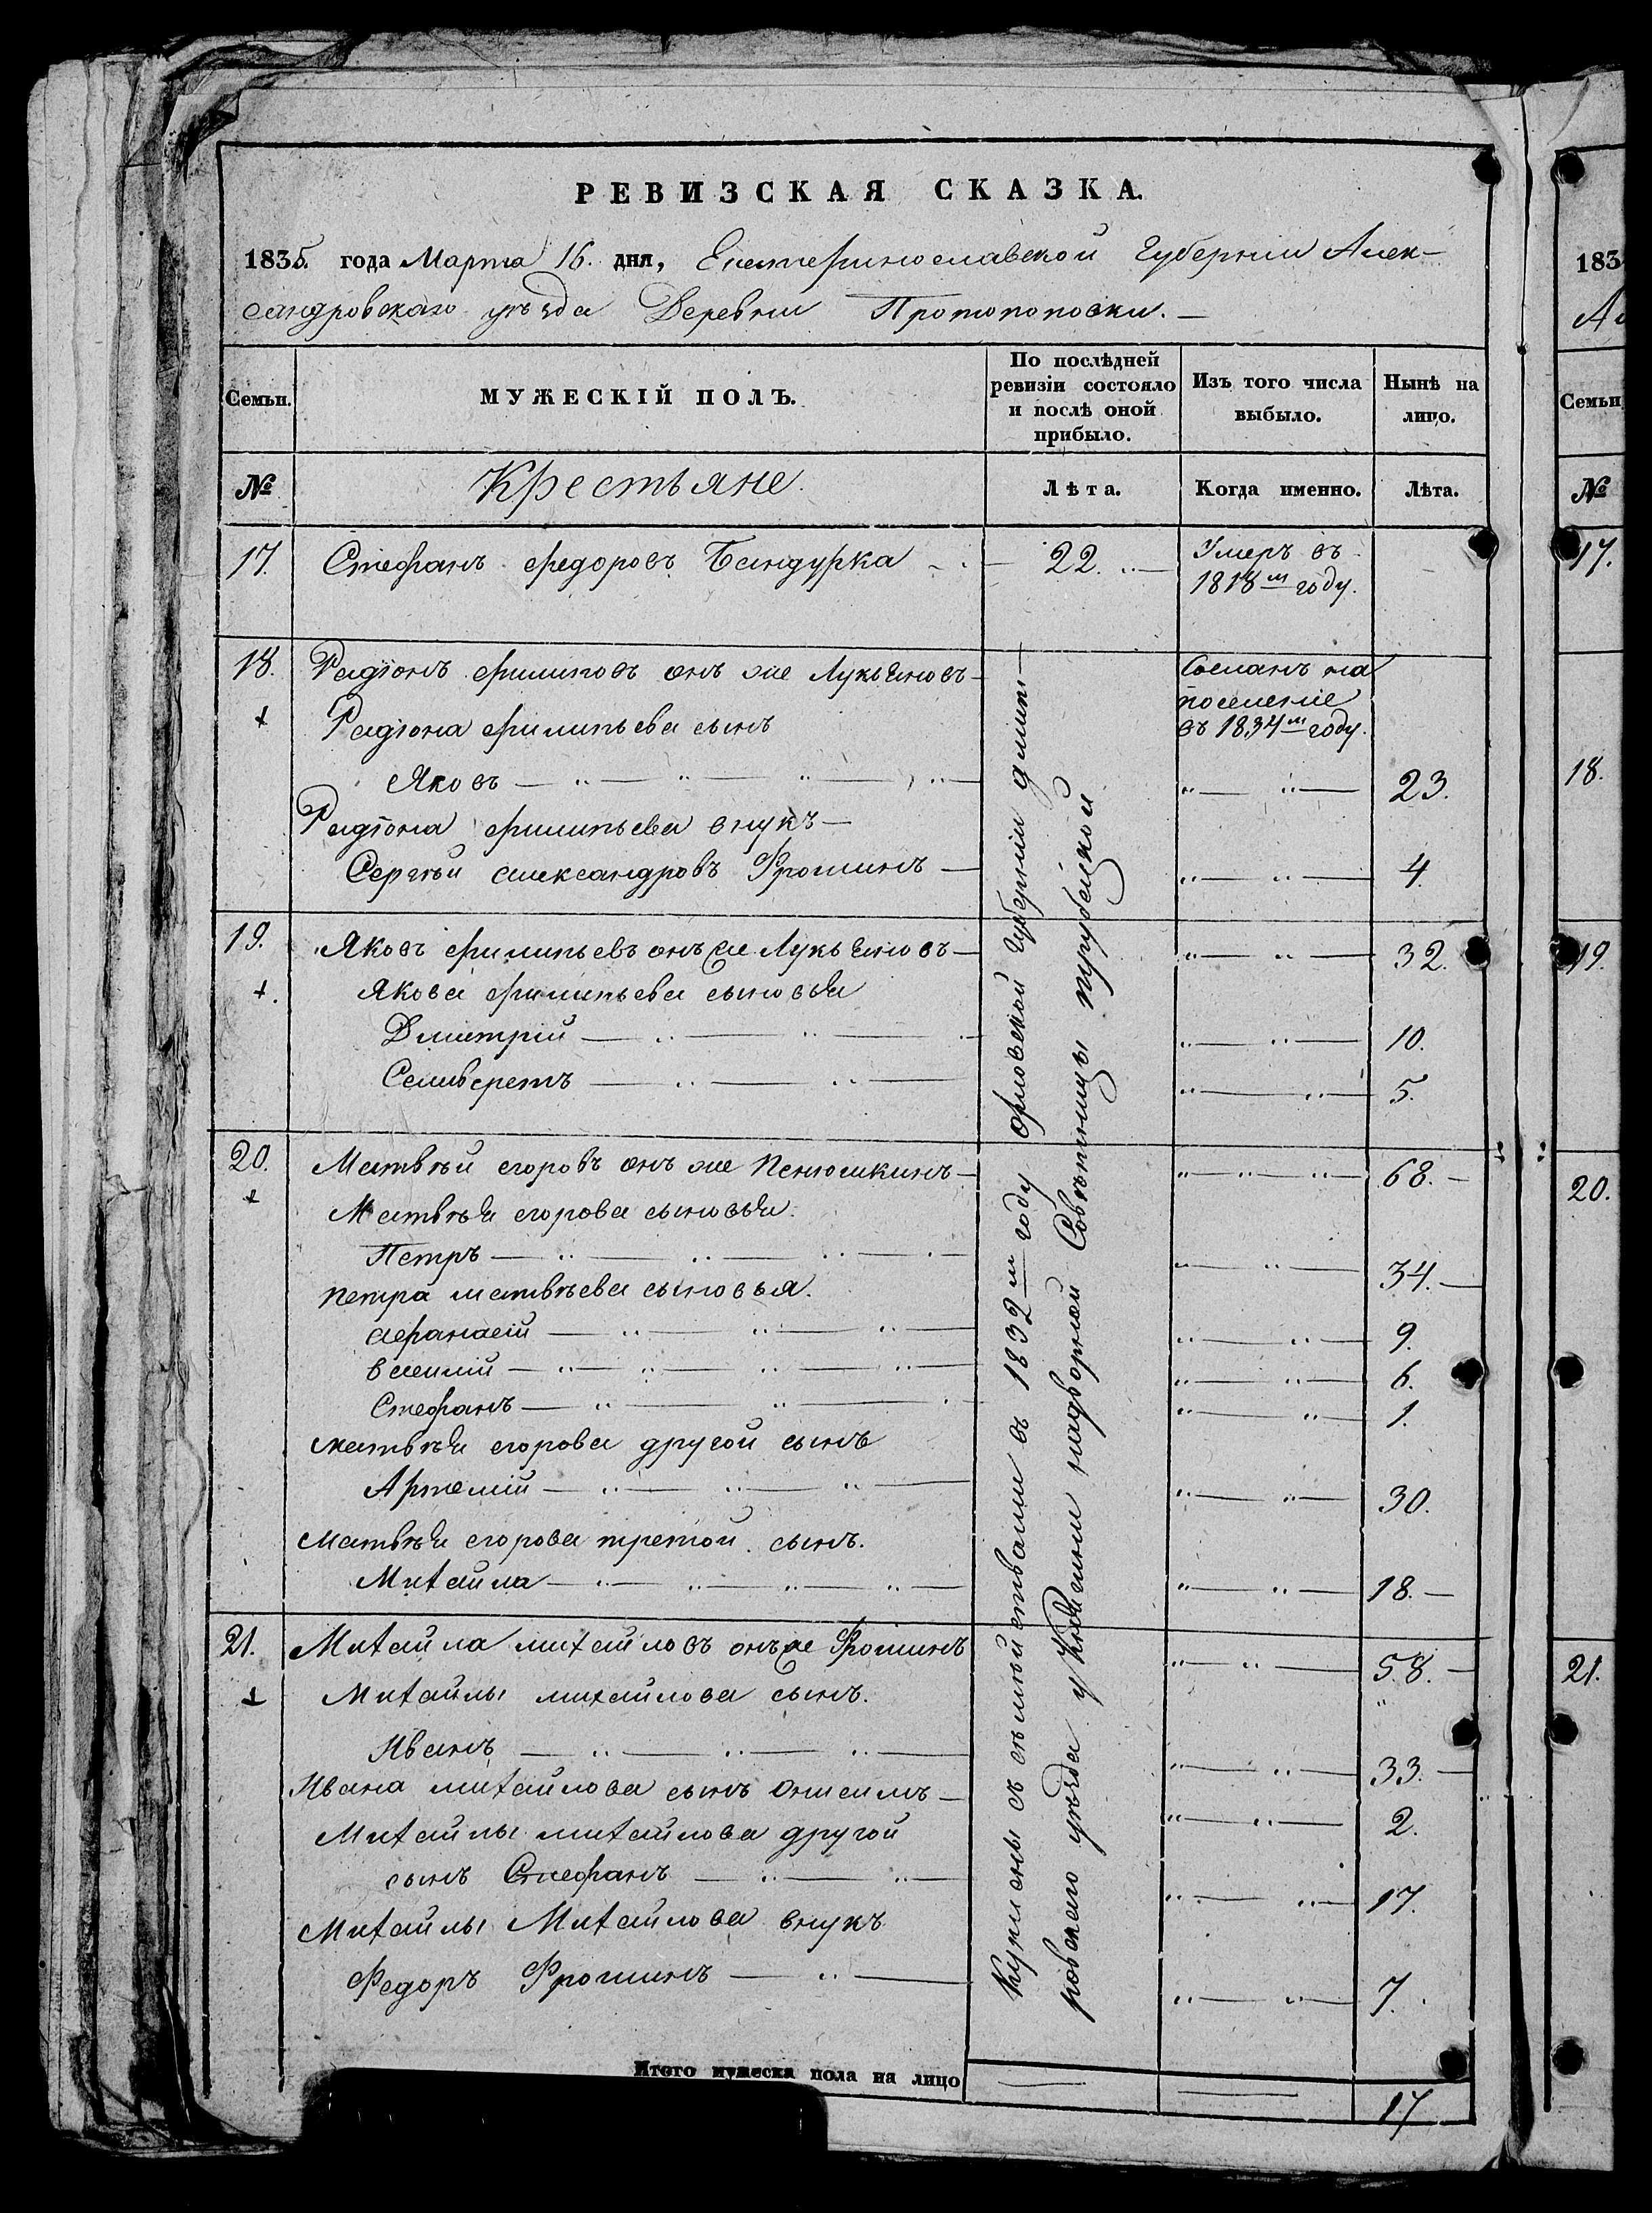 РЕВИЗСКАЯ СКАЗКА.
1835. года Марта 16. дня, Екатеринославской Губернии Алек-
сандровскаго уѣзда Деревни Протопоповки. —
Семьи. МУЖЕСКІЙ ПОЛЪ. По послѣдней ревизіи состояло и послѣ оной прибыло. Изъ того числа выбыло. Нынѣ на лицо.
№ Крестьяне. Лѣта. Когда именно. Лѣта.
17. Стефанъ федоровъ Бандурка — 22. — Умеръ въ
1818м году.
18. Радіонъ филиповъ онъ же Лукьяновъ — Сосланъ на
поселеніе
въ 1834м году.
Радіона филипьева сынъ
Яковъ — 23.
Радіона филипьева внукъ —
Сергѣй александровъ Фроминъ — 4.
19. Яковъ филипьевъ онъ же Лукьяновъ — 32.
Якова филипьева сыновья
Дмитрій — 10.
Селиверстъ — 5.
20. Матвѣй егоровъ онъ же Пенюшкинъ — 68. —
Матвѣя егорова сыновья.
Петръ — 34. —
Петра матвѣева сыновья.
афанасій — 9.
василій — 6.
Стефанъ — 1.
матвѣя егорова другой сынъ
Артемій — 30.
матвѣя егорова третой сынъ.
Михайла — 18. —
21. Михайла михайловъ онъ же Фроминъ 58. —
Михайлы михайлова сынъ.
Иванъ — 33. —
Ивана михайлова сынъ Онисимъ — 2.
Михайлы михайлова другой
сынъ Стефанъ — 17.
Михайлы Михайлова внукъ
Федоръ Фроминъ — 7.
Куплены съ семействами въ 1832м году орловской Губерніи дмит—
ровскаго уѣзда у Княгини надворной Совѣтницы трубецкой
Итого мужеска пола на лицо — — 17
183
Ал
Семьи
№
17.
18.
19.
20.
21.